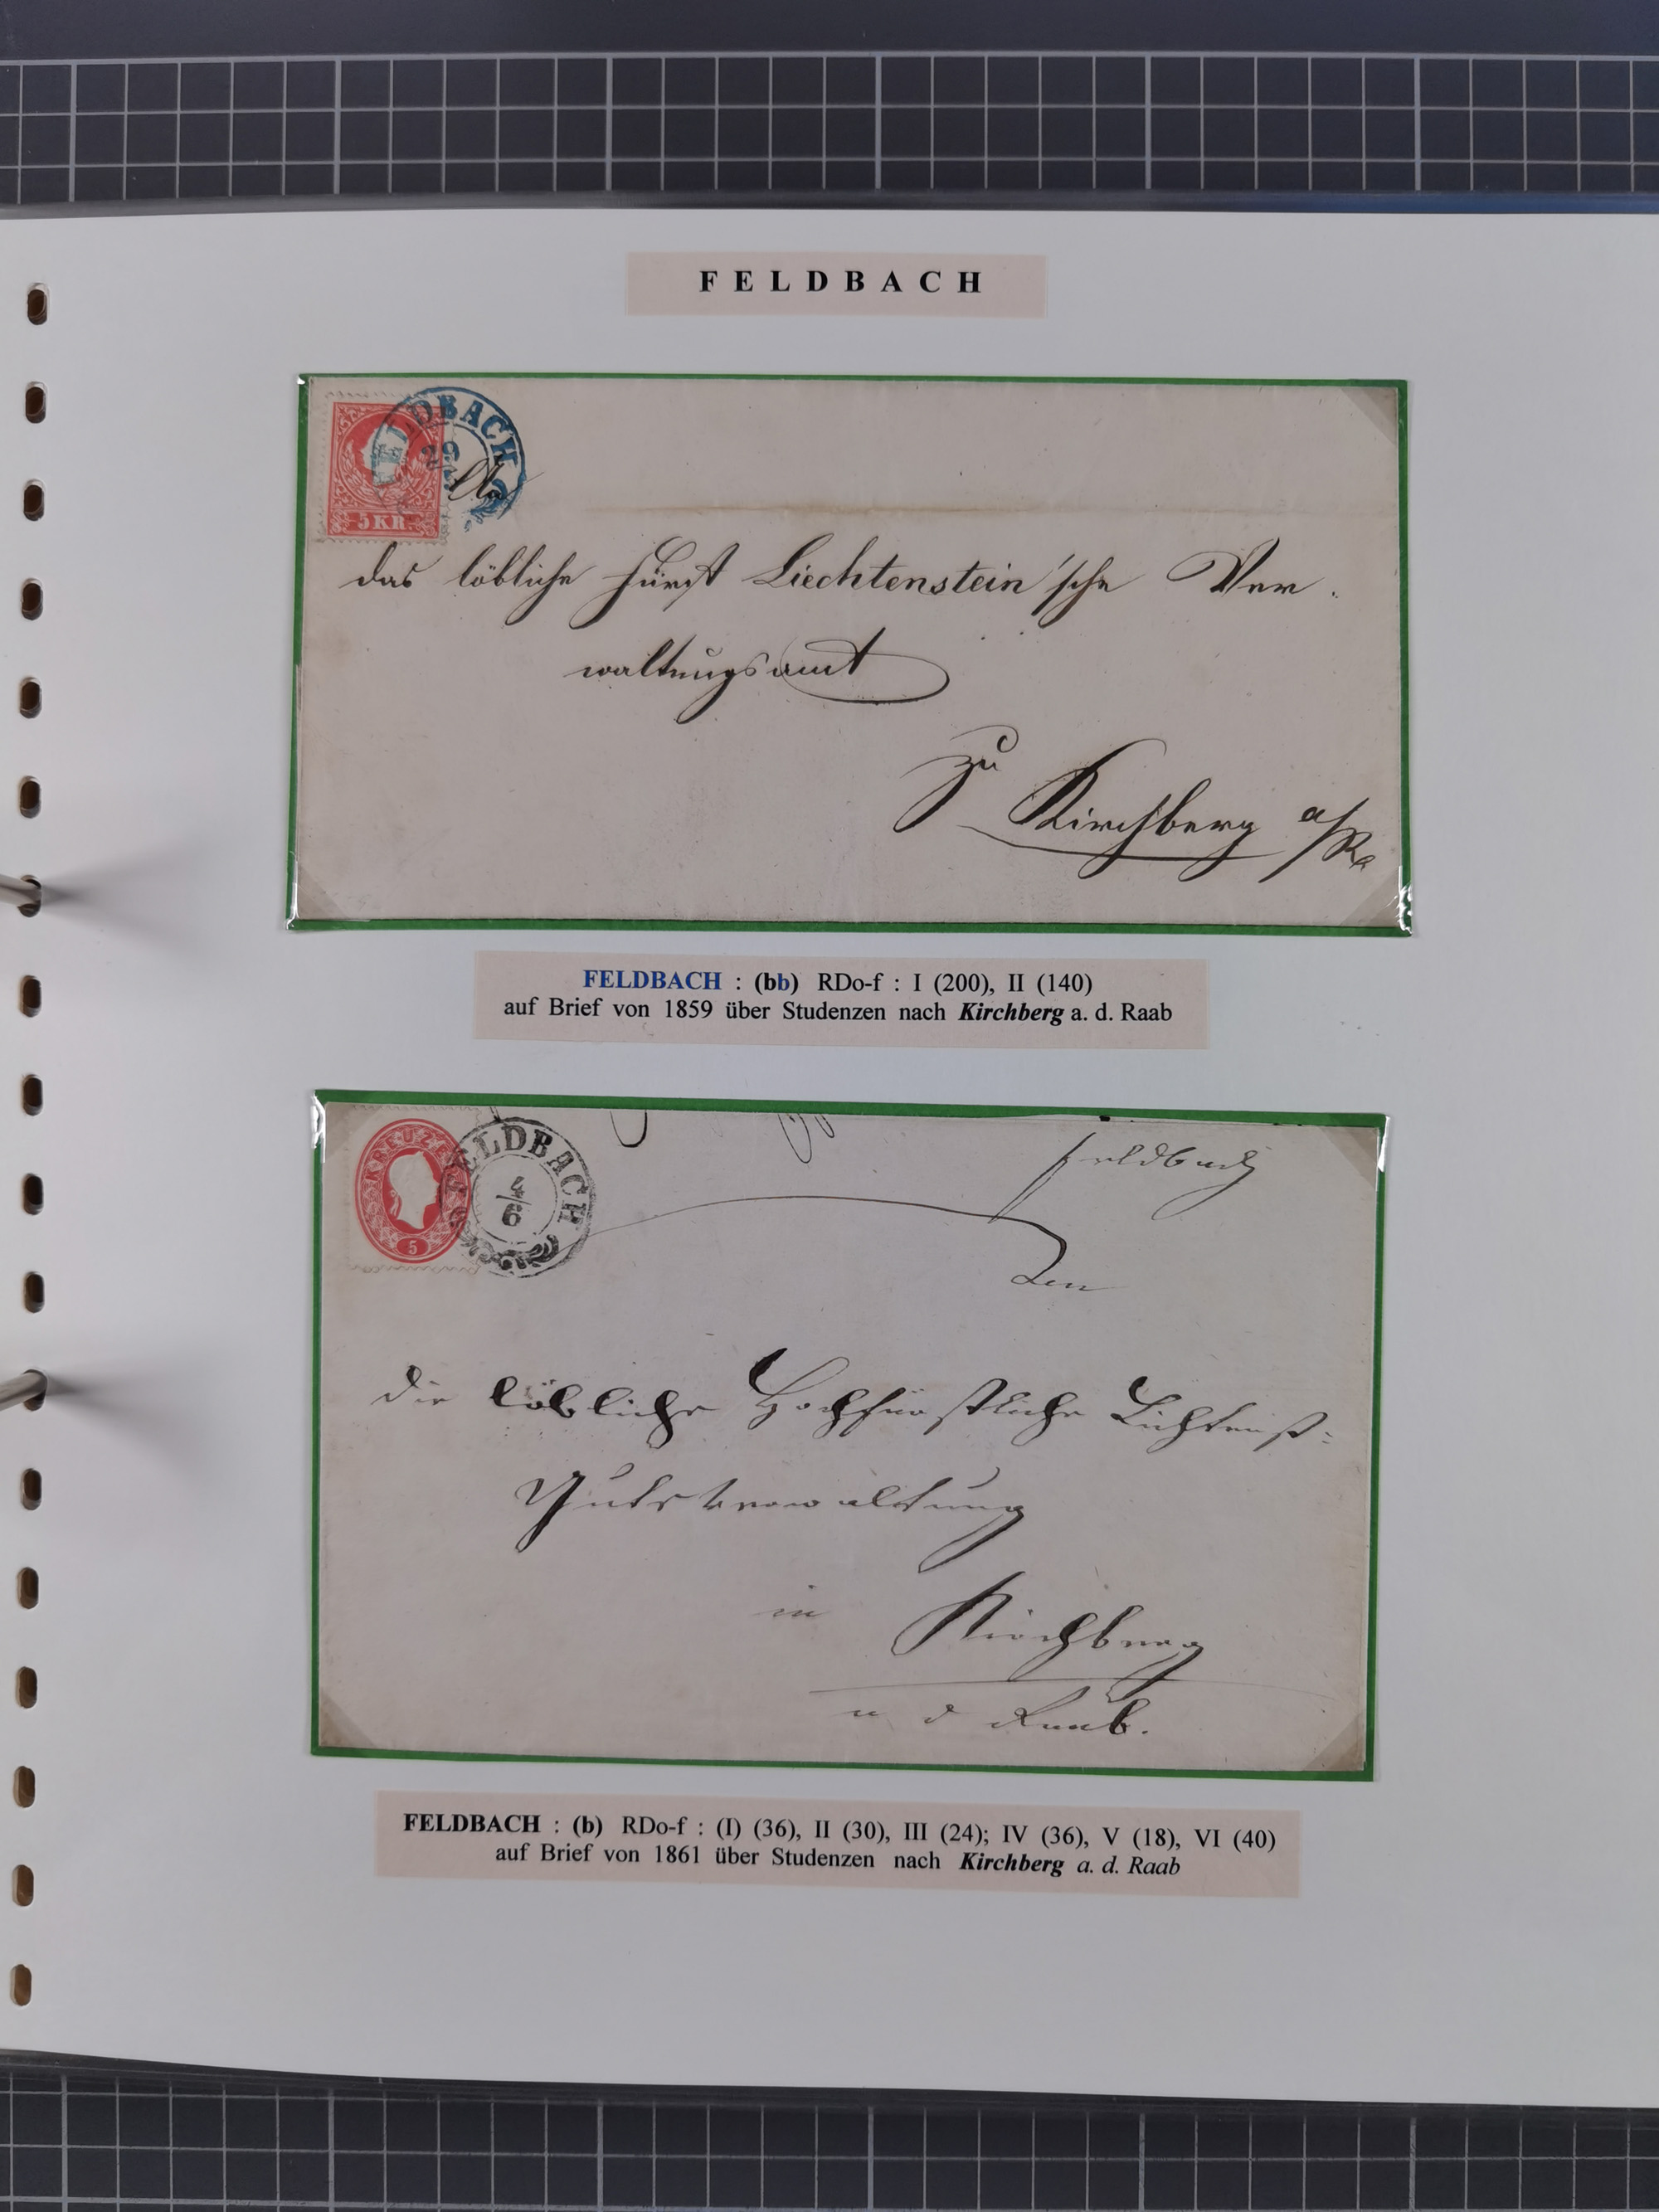 FELDBACH
FELDBACH
29
5 KR.
das löbliche Fürst Liechtenstein'sche Ver.
waltungsamt
zu
Kirchberg a/Ra
FELDBACH : (bb) RDo-f : I (200), II (140)
auf Brief von 1859 über Studenzen nach Kirchberg a. d. Raab
KREUZER
5
FELDBACH
4/6
Feldbach
Die löbliche Hochfürstliche Lichtenst:
Gutsverwaltung
in Kirchberg
a d Raab.
FELDBACH : (b) RDo-f : (I) (36), II (30), III (24); IV (36), V (18), VI (40)
auf Brief von 1861 über Studenzen nach Kirchberg a. d. Raab